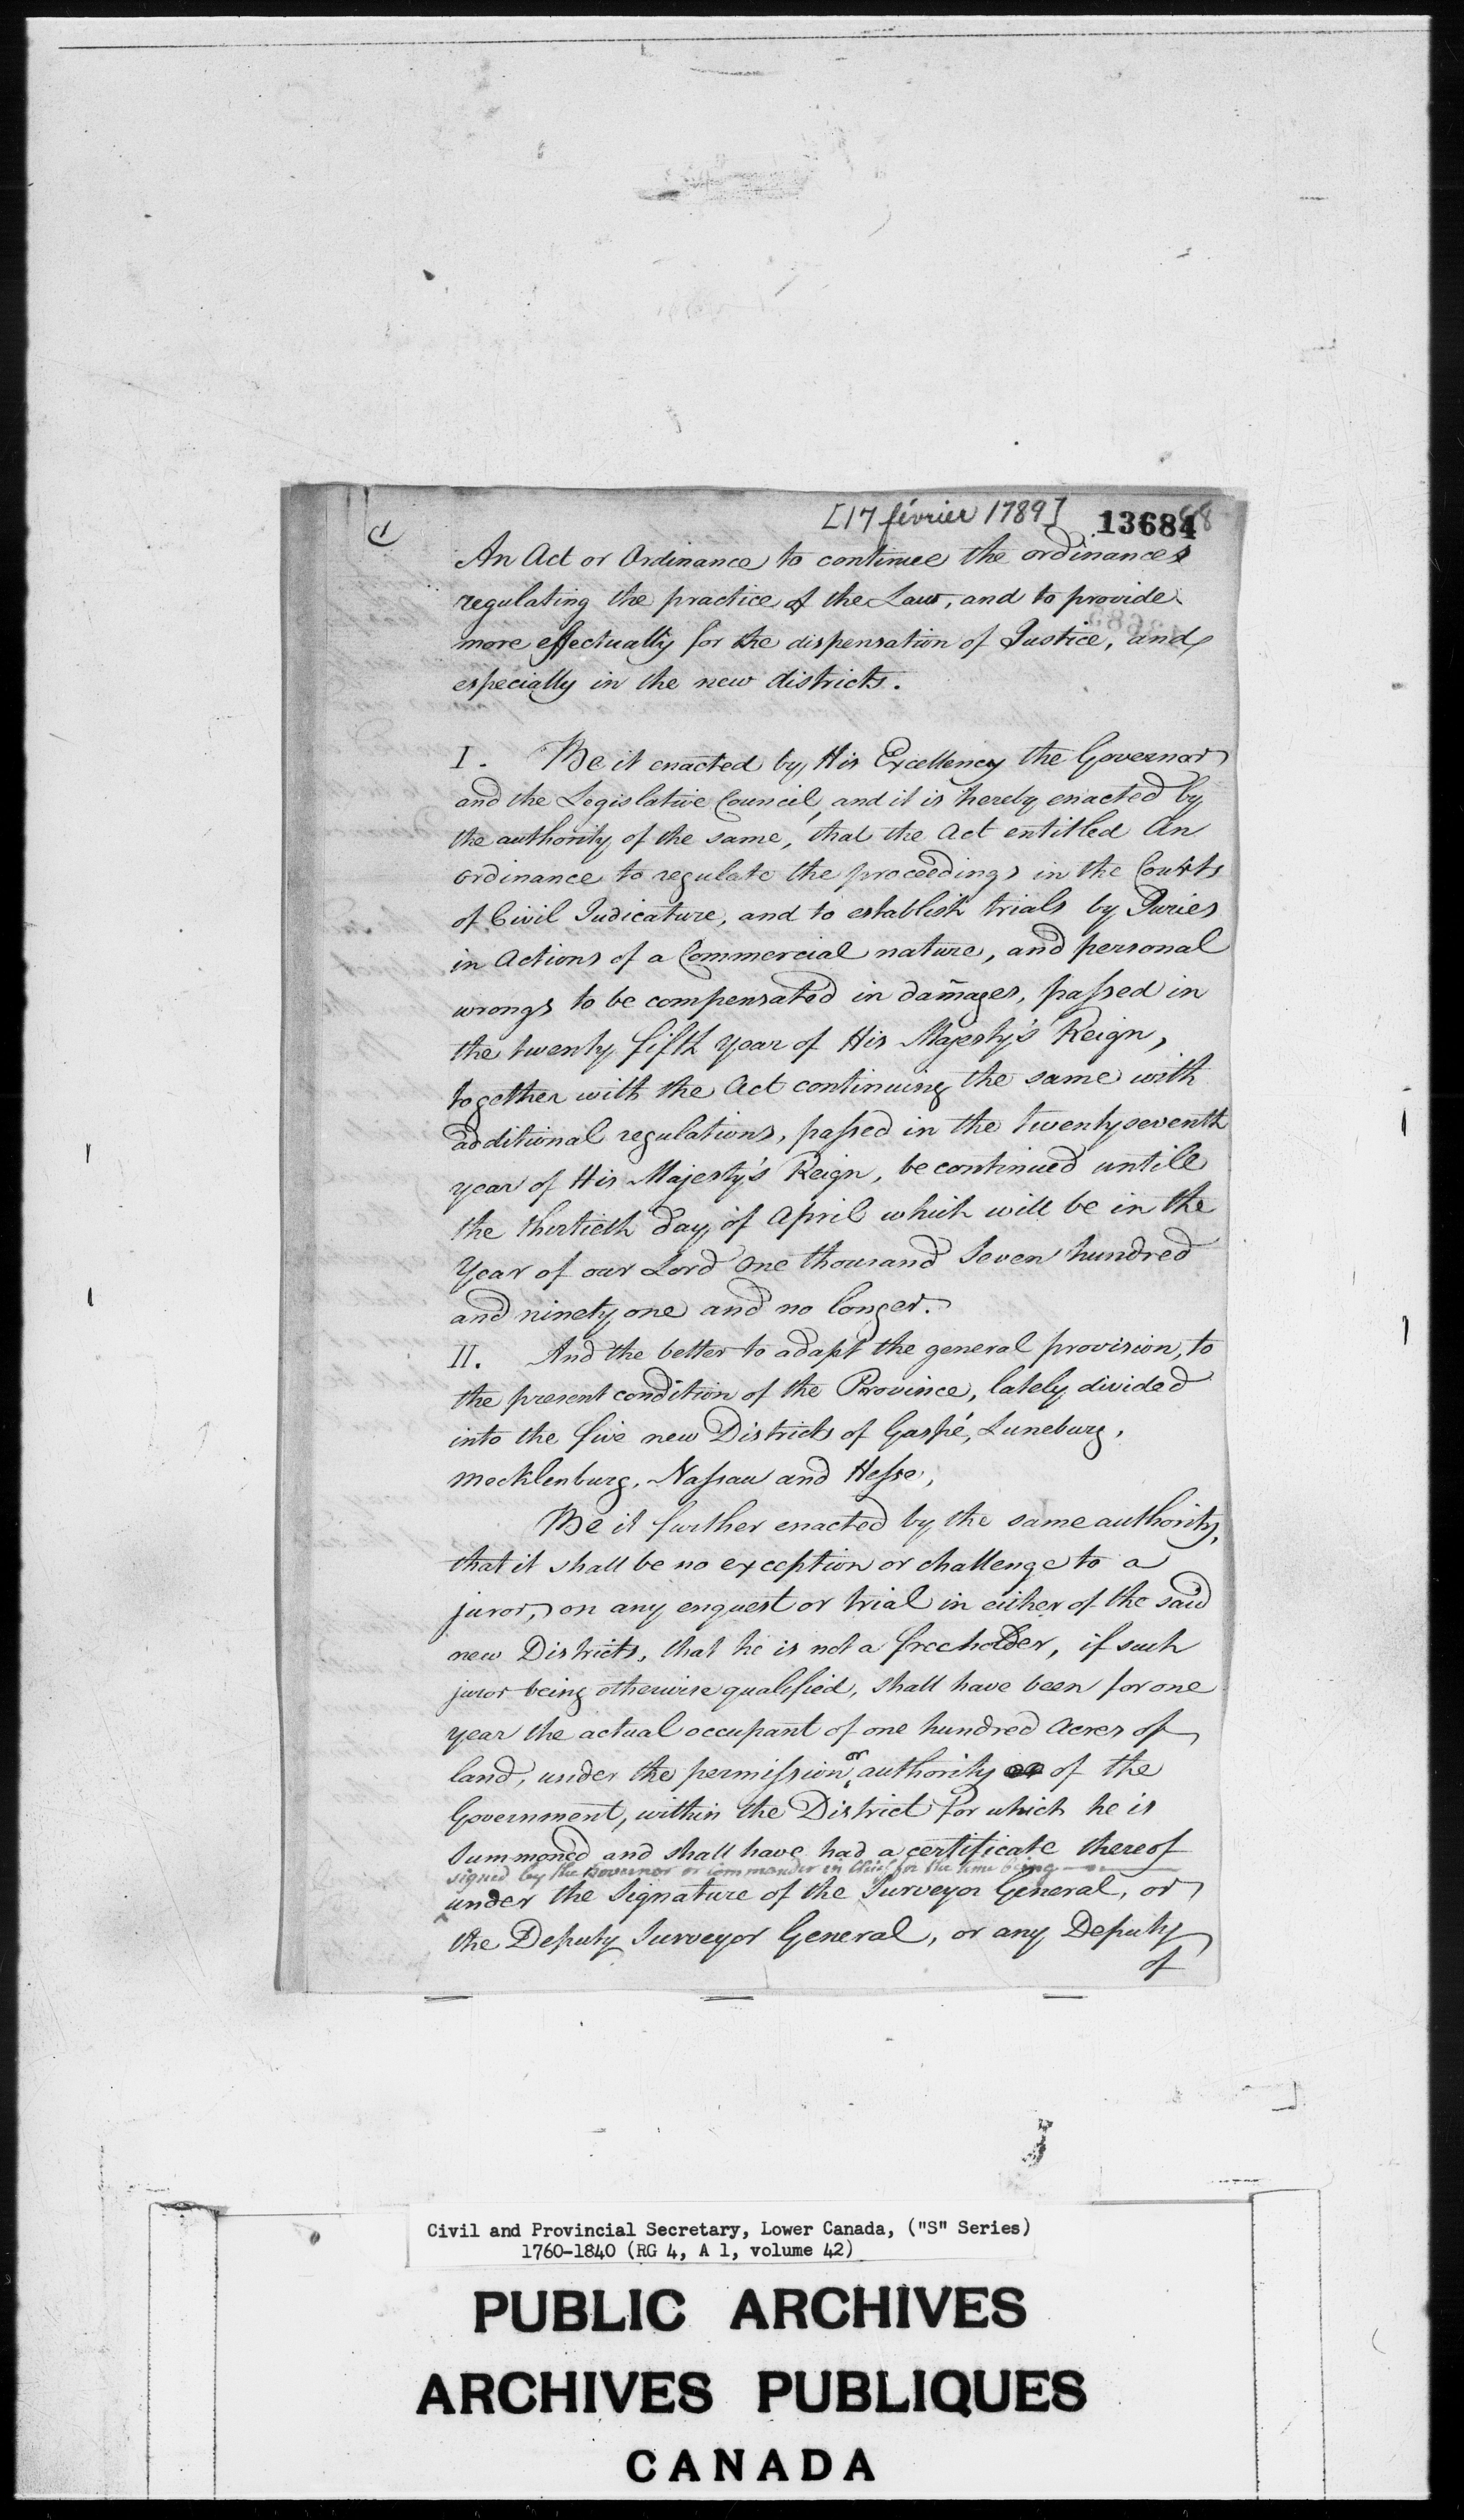 [17 février 1789] 13684
An Act or Ordinance to continue the ordinances
regulating the practice of the Law, and to provide
more effectually for the dispensation of Justice, and
especially in the new districts.
I. Be it enacted by His Excellency the Governor
and the Legislative Council, and it is hereby enacted by
the authority of the same, that the Act entitled An
ordinance to regulate the proceedings in the Courts
of Civil Judicature, and to establish trials by Juries
in Actions of a Commercial nature, and personal
wrongs to be compensated in damages, passed in
the twenty fifth year of His Majesty's Reign,
together with the Act continuing the same with
additional regulations, passed in the twenty seventh
year of His Majesty's Reign, be continued untill
the thirtieth day of April which will be in the
Year of our Lord One thousand Seven hundred
and ninety one and no longer.
II. And the better to adapt the general provision, to
the present condition of the Province, lately divided
into the five new Districts of Gaspé, Luneburg,
Mecklenburg, Nassau and Hesse,
Be it further enacted by the same authority,
that it shall be no exception or challenge to a
juror, on any enquest or trial in either of the said
new Districts, that he is not a freeholder, if such
juror being otherwise qualified, shall have been for one
year the actual occupant of one hundred Acres of
land, under the permission or authority or of the
Government, within the District for which he is
Summoned and shall have had a certificate thereof
signed by the Governor or Commander in Chief for the time being
under the Signature of the Surveyor General, or
the Deputy Surveyor General, or any Deputy
of
Civil and Provincial Secretary, Lower Canada, ("S" Series)
1760-1840 (RG 4, A 1, volume 42)
PUBLIC ARCHIVES
ARCHIVES PUBLIQUES
CANADA